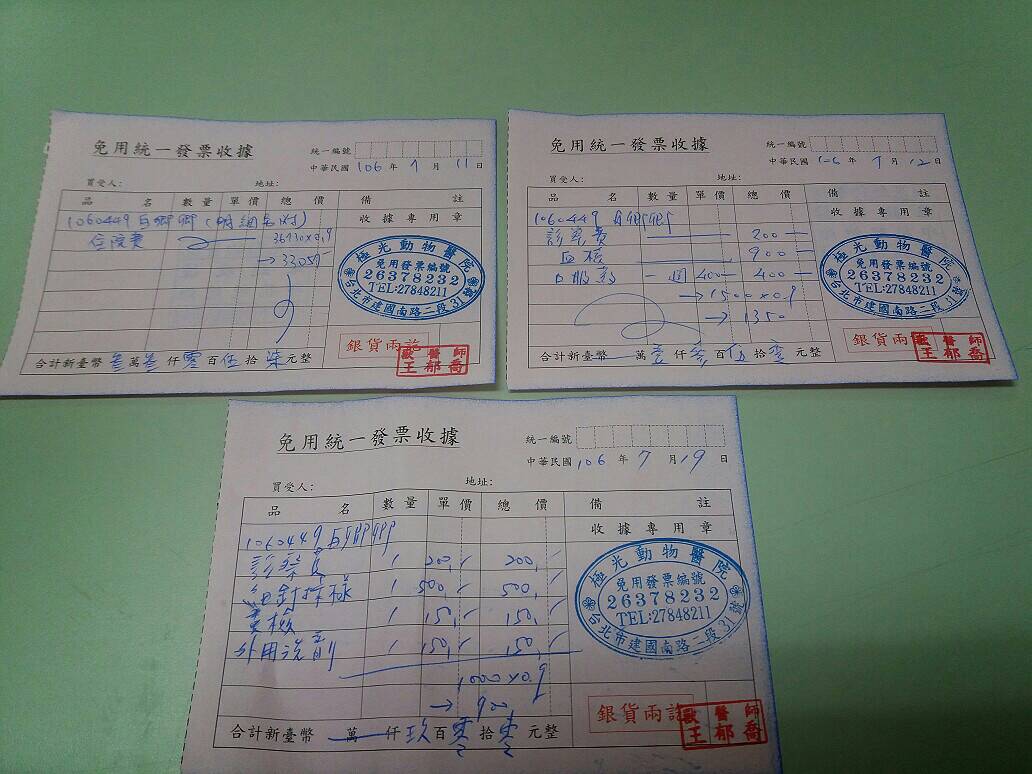 免用統一發票收據
統一編號
中華民國 106 年 7 月 11 日
買受人: 地址:
品 名 數量 單價 總 價 備 註
1060449 白鄉鄉
收據專用章
住院費 36730x0.9
→ 33057-
極光動物醫院
免用發票編號
26378232
TEL:27848211
台北市建國南路二段31號
銀貨兩訖
獸醫師
王郁喬
合計新臺幣 叁萬叁仟零百伍拾柒元整
免用統一發票收據
統一編號
中華民國 106 年 7 月 12 日
買受人: 地址:
品 名 數量 單價 總 價 備 註
1060449 白鄉鄉
收據專用章
診察費 200 —
血檢 900 —
口服藥 一週 400— 400 —
→1500x0.9
→ 1350
極光動物醫院
免用發票編號
26378232
TEL:27848211
台北市建國南路二段31號
銀貨兩訖
獸醫師
王郁喬
合計新臺幣 萬壹仟叁百伍拾零元整
免用統一發票收據
統一編號
中華民國 106 年 7 月 19 日
買受人: 地址:
品 名 數量 單價 總 價 備 註
1060449 白鄉鄉
收據專用章
診察費 1 200,- 200,-
細針採樣 1 500,- 500,-
糞檢 1 150,- 150,-
外用洗劑 1 150,- 150,-
1000x0.9
→ 900,
極光動物醫院
免用發票編號
26378232
TEL:27848211
台北市建國南路二段31號
銀貨兩訖
獸醫師
王郁喬
合計新臺幣 萬 仟玖百零拾零元整